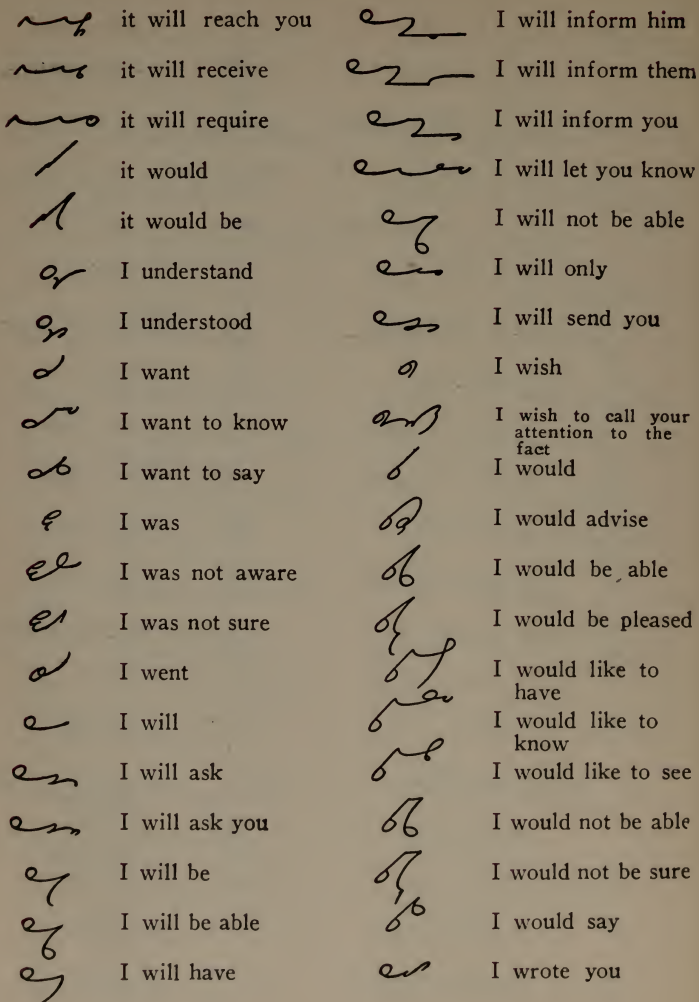 it will reach you
it will receive
it will require
it would
it would be
I understand
I understood
I want
I want to know
I want to say
I was
I was not aware
I was not sure
I went
I will
I will ask
I will ask you
I will be
I will be able
I will have
I will inform him
I will inform them
I will inform you
I will let you know
I will not be able
I will only
I will send you
I wish
I wish to call your
attention to the
fact
I would
I would advise
I would be able
I would be pleased
I would like to
have
I would like to
know
I would like to see
I would not be able
I would not be sure
I would say
I wrote you